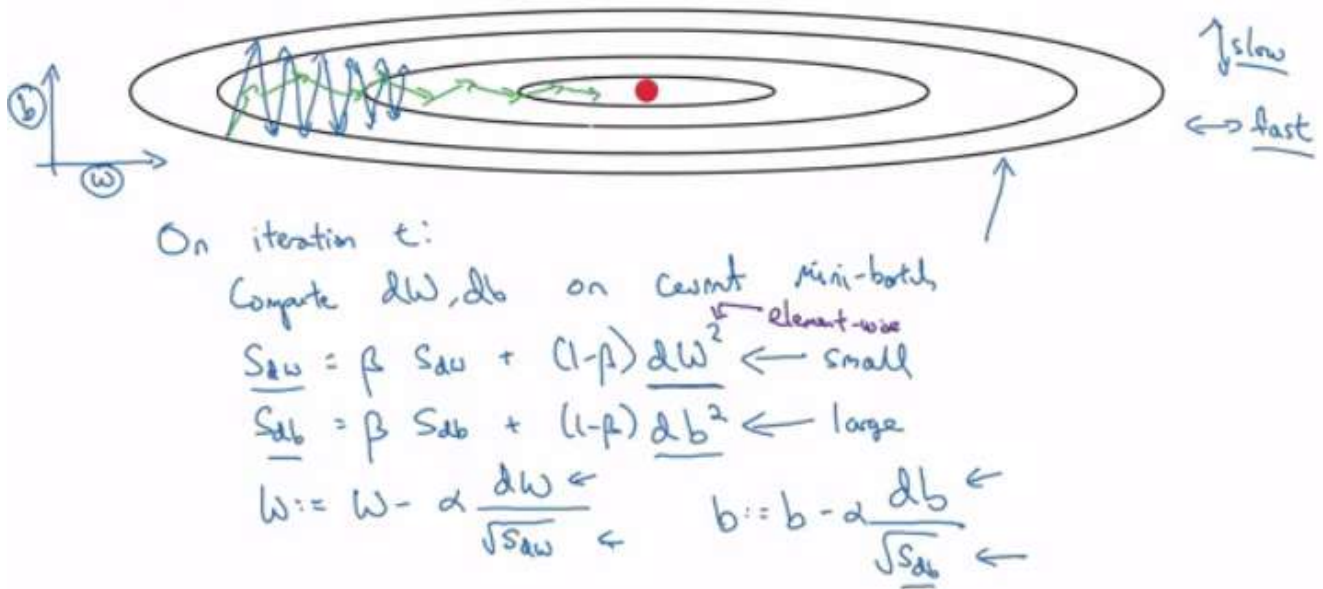 slow
b
fast
w
On iteration t:
Compute dW, db on current mini-batch
element-wise
Sdw = β Sdw + (1-β) dW² ← small
Sdb = β Sdb + (1-β) db² ← large
W := W - α dW/√Sdw ← b := b - α db/√Sdb ←